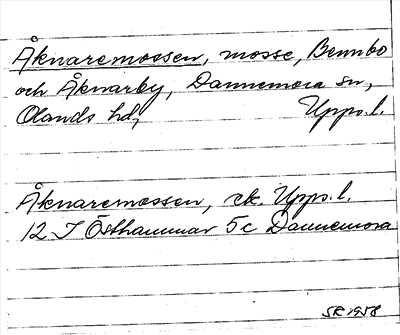 Åknaremossen, mosse, Bennbo
och Åknarby, Dannemora sn,
Olands hd, Upps. l.
Åknaremossen, ek. Upps. l.
12 I Östhammar 5c Dannemora
SR 1958